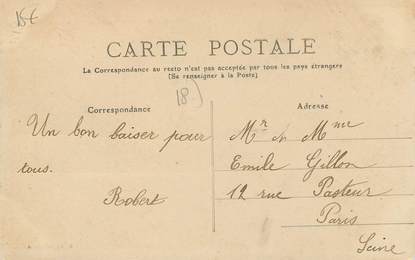 15€
CARTE POSTALE
La Correspondance au recto n'est pas acceptée par tous les pays étrangers
(Se renseigner à la Poste)
Correspondance
18)
Un bon baiser pour
tous.
Robert
Adresse
Mr & Mme
Emile Gillon
12 rue Pasteur
Paris
Seine